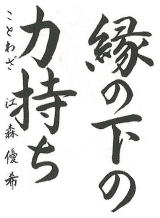 縁の下の
力持ち
ことわざ　江森優希